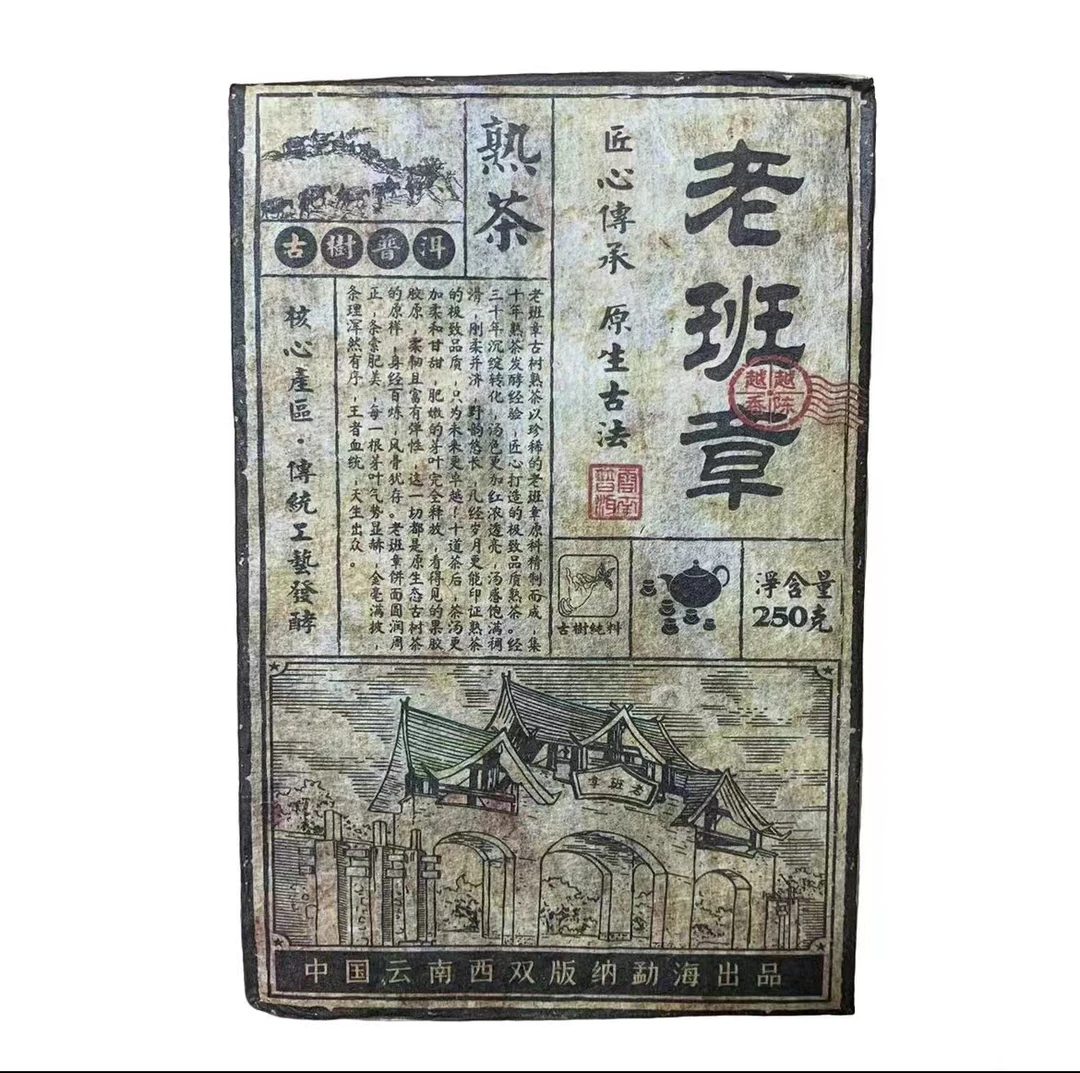 老班章
越陈
越香
匠心傳承 原生古法
雲南
普洱
熟茶
古樹普洱
老班章古树熟茶以珍稀的老班章原料精制而成，集
十年熟茶发酵经验，匠心打造的极致品质熟茶。经
三十年沉淀转化，汤色更加红浓透亮，汤感饱满稠
滑，刚柔并济，野韵悠长，几经岁月更能印证熟茶
的极致品质，只为未来更卓越！十道茶后，茶汤更
加柔和甘甜，肥嫩的芽叶完全释放，看得见的果胶
胶原，柔韧且富有弹性，这一切都是原生态古树茶
的原样，身经百炼，风骨犹存。老班章饼面圆润周
正，条索肥美，每一根芽叶气势显赫，金毫满披，
条理浑然有序，王者血统，天生出众。
核心產區·傳統工藝發酵
古樹純料
淨含量
250克
老班章
中国云南西双版纳勐海出品